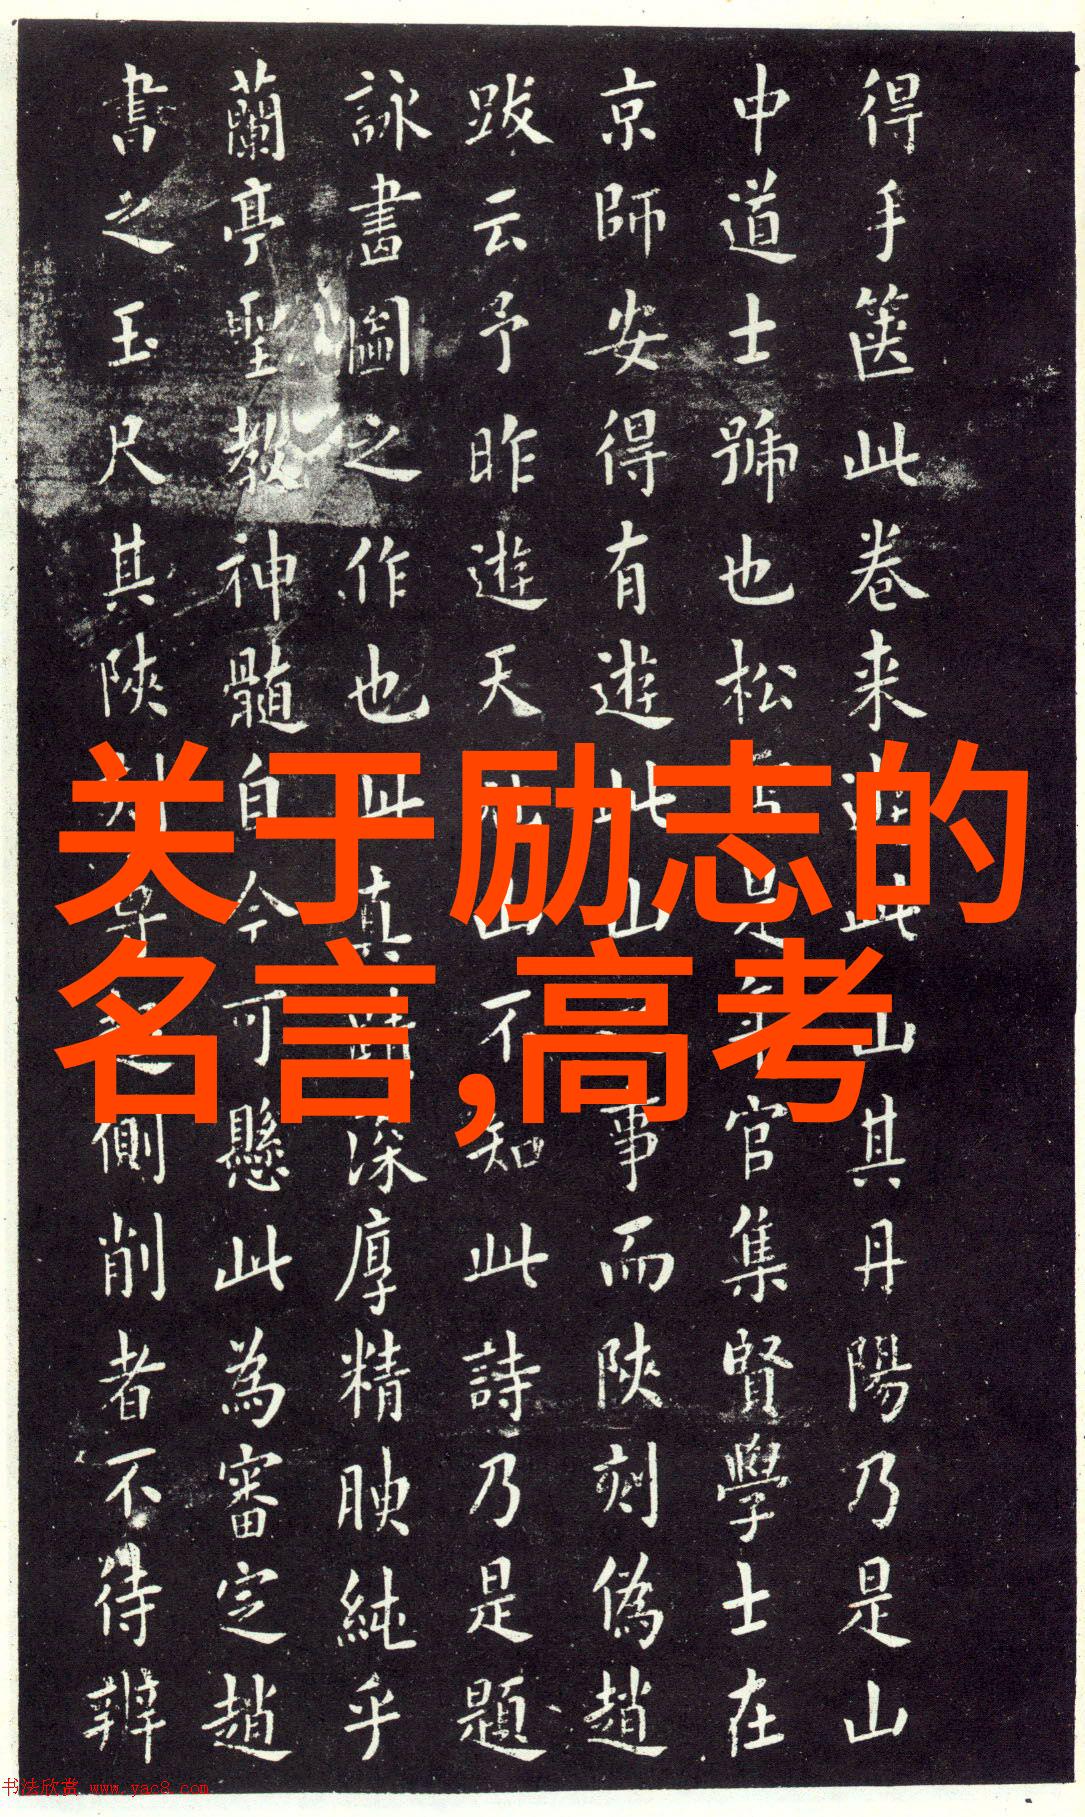 得手篋此卷来遊此山其丹陽乃是山
中道士號也松是年官集賢學士在
京師安得有遊此山事而陝刻偽趙
跋云予昨遊天冠山不知此詩乃是題
詠畫圖之作也此真蹟深厚精腴純乎
蘭亭聖教神髓自今可懸此為審定趙
書之玉尺其陝刻專側削者不待辨
关于励志的
名言,高考
书法欣赏 www.yac8.com